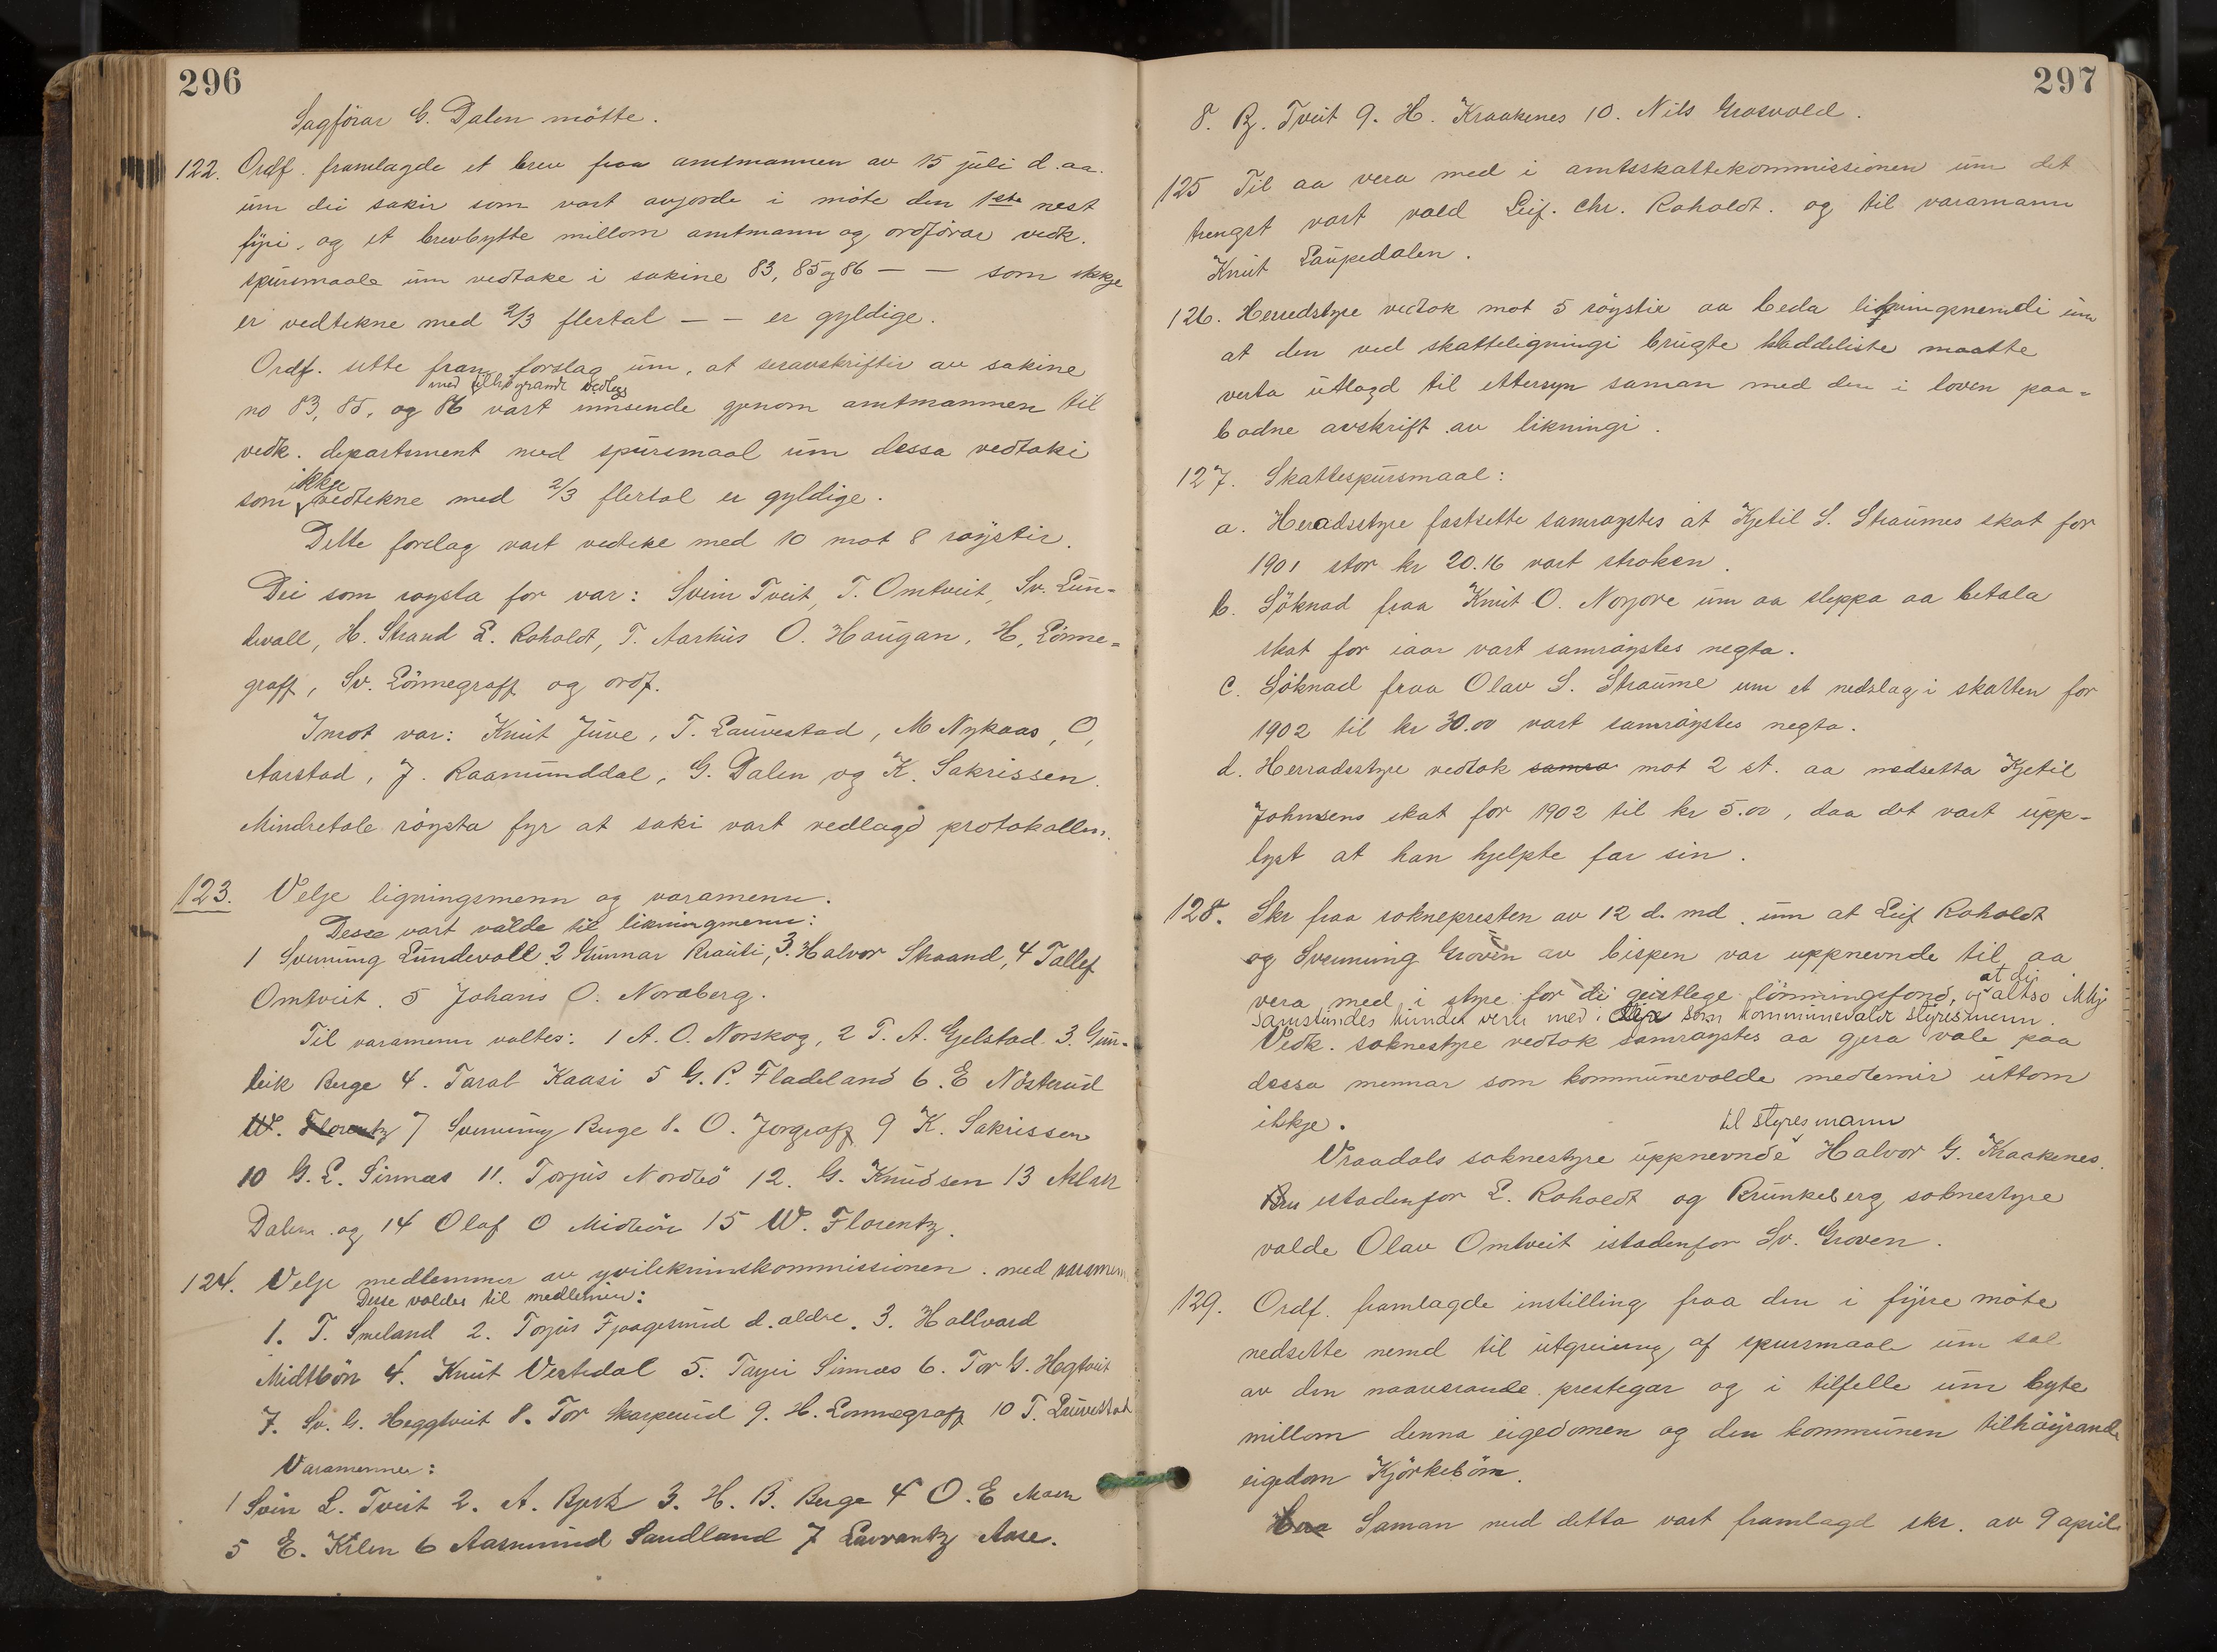 296
Sagförar G. Dalen mötte.
122. Ordf. framlagde et brev fraa amtmannen av 15 juli d. aa.
um dei sakir som vart avgjorde i möte den 1ste nest
fyri, og et brevbytte millom amtmann og ordförar vedk.
spursmaale um vedtake i sakine 83, 85 og 86 — — som ikkje
er vedtekne med 2/3 flertal — — er gyldige.
Ordf. sette fram forslag um, at seravskriftir av sakine
med tilhögrande vedlegg
no 83, 85, og 86 vart innsende gjenom amtmannen til
vedk. departement med spursmaal um dessa vedtaki
ikkje
som vedtekne med 2/3 flertal er gyldige.
Dette forslag vart vedteke med 10 mot 8 röystir.
Dei som röysta for var: Svein Tveit, T. Omtveit, Sv. Lun-
devall, H. Strand L. Roholdt, T. Aarhus O. Haugan, H. Lönne-
graff, Sv. Lönnegraff og ordf.
Imot var: Knut Juve, T. Lauvestad, M Nykaas, O,
Aarstad, J. Raamunddal, G. Dalen og K. Sakrissen.
Mindretale röysta fyr at saki vart vedlagd protokollen.
123. Velje ligningsmenn og varamenn.
Desse vart valde til likningmenn:
1 Svenung Lundevall 2 Gunnar Brauti, 3. Halvor Straand, 4 Tallef
Omtveit. 5 Johans O. Nordberg.
Til varamenn valtes: 1 A. O. Norskog, 2 T. A. Gjelstad 3. Gun-
leik Berge 4. Tarat Kaasi 5 G. P. Fladeland 6. E Nösterud
W. Florentz 7 Svenung Berge 8. O. Jorgraff 9 K. Sakrissen
10 G. L. Sinnes 11. Torjus Nordbö 12. G. Knudsen 13 Aslak
Dalen og 14 Olaf O Midtbön 15 W. Florentz.
124. Velje medlemmer av yvilikninskommissionen med varamenn
Desse valdes til medlemir:
1. T. Smeland 2. Torjus Fjaagesund d. aldre. 3. Hallvard
Midtbön 4. Knut Vestdal 5. Tarjei Sinnes 6. Tor G. Hegtveit
7. Sv. G. Heggtveit 8. Tor Skarperud 9. H. Lonnegraff 10 T. Lauvestad
Varamenner:
1 Svin L. Tveit 2. A. Bjerk 3. H. B. Berge 4 O. E Moen
5 E. Kilen 6 Aasmund Sandland 7 Lavrantz Aase.
297
8. B. Tveit 9. H. Kraakenes 10. Nils Grosvold.
125 Til aa vera med i amtsskattekommissionen um det
trengst vart vald Leif. Chr. Roholdt. og til varamann
Knut Laupedalen.
126. Herredstyre vedtok mot 5 röystir aa beda likningsnemdi um
at den ved skatteligningi brugte kladdeliste maatte
verta utlagd til ettersyn saman med den i loven paa-
bodne avskrift av likningi.
127. Skattespursmaal:
a. Heradsstyre fastsette samröystes at Kjetil S. Straumes skat for
1901 stor kr 20.16 vart stroken.
b. Söknad fraa Knut O. Norjore um aa sleppa aa betala
skat for iaar vart samröystes negta.
c. Söknad fraa Olav S. Straume um et nedslag i skatten for
1902 til kr 30.00 vart samröystes negta.
d. Herradsstyre vedtok samrö mot 2 st. aa nedsetta Kjetil
Johnsens skat for 1902 til kr 5.00, daa det vart upp-
lyst at han hjelpte far sin.
128. Skr fraa soknepresten av 12 d. md. um at Leif Roholdt
og Svenning Groven av bispen var uppnevnde til aa
at di
vera med i styre for di geistlege lönningsfond, og altso ikkje
samstundes kunde vera med i som kommunevalde styresmenn.
Vedk. soknestyre vedtok samröystes aa gjera vale paa
dessa mennar som kommunevalde medlemir uttom
ikkje.
til styresmann
Vraadals soknestyre uppnevnde Halvor G. Kraakenes
istadenfor L. Roholdt og Brunkeberg soknestyre
valde Olav Omtveit istadenfor Sv. Groven.
129. Ordf. framlagde instilling fraa den i fyrre möte
nedsette nemd til utgreiing af spursmaale um sal
av den naaverande prestegar og i tilfelle um byte
millom denna eigedomen og den kommunen tilhöyrande
eigedom Kjörkebön.
Saman med detta vart framlagd skr. av 9 april